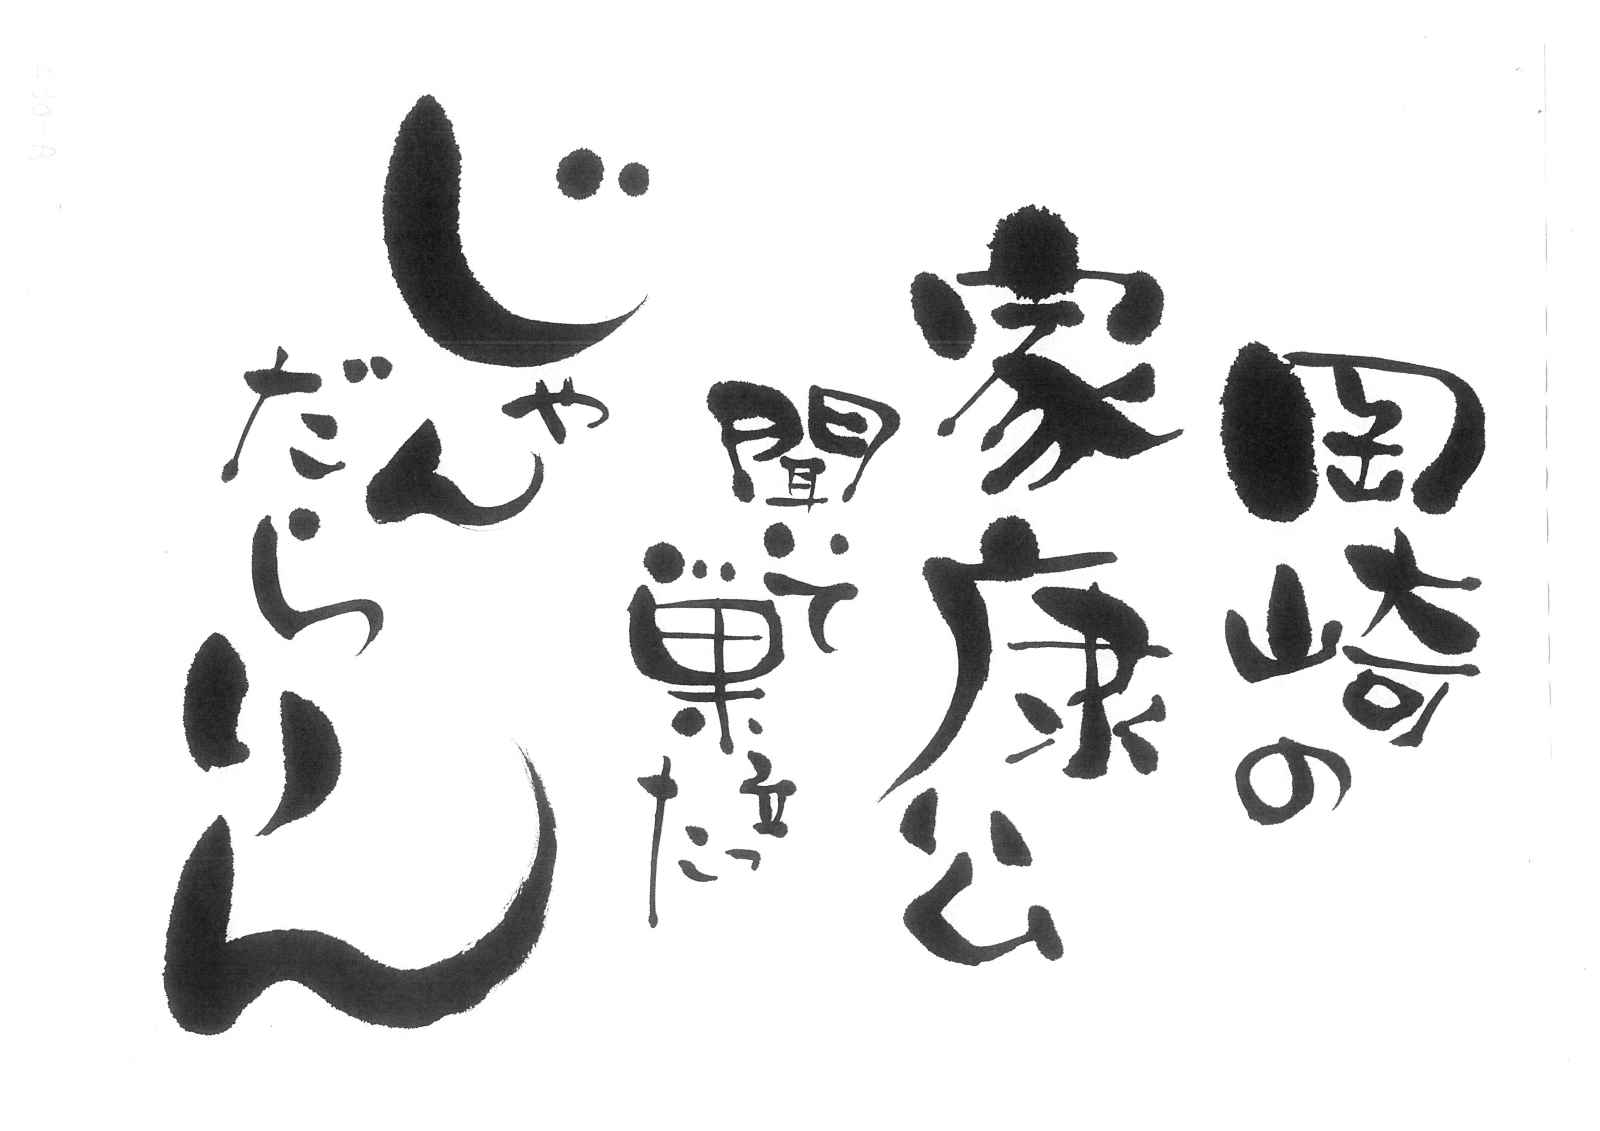 岡崎の
家康公
聞いて
巣立った
じゃん
だらりん